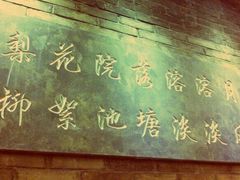 梨花院落溶溶月
柳絮池塘淡淡